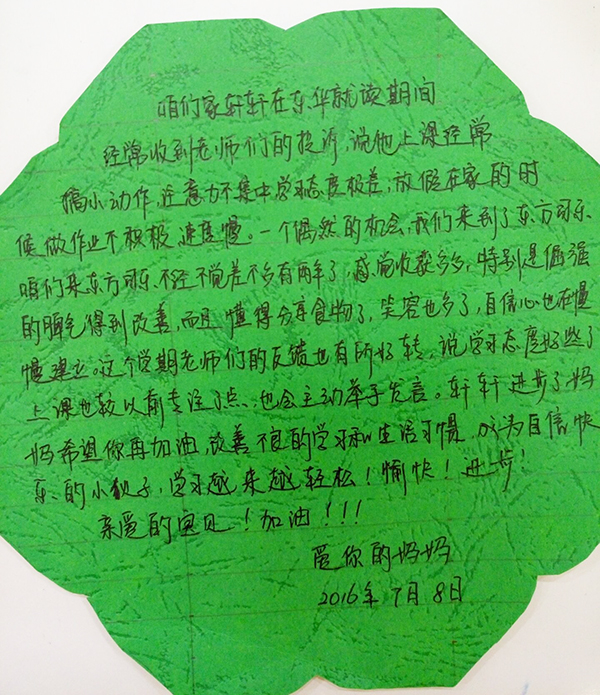 咱们家轩轩在东华就读期间
经常收到老师们的投诉,说他上课经常
搞小动作,注意力不集中学习态度极差,放假在家的时
候做作业不积极,速度慢。一个偶然的机会,我们来到了东方可乐
咱们来东方可乐不经不觉差不多有两年了,感觉收获多多,特别是倔强
的脾气得到改善,而且懂得分享食物了,笑容也多了,自信心也在慢
慢建立。这个学期老师们的反馈也有所好转,说学习态度好些了
上课也较以前专注了点、也会主动举手发言。轩轩进步了妈
妈希望你再加油,改善不良的学习和生活习惯,成为自信快
乐的小伙子,学习越来越轻松!愉快!进步!
亲爱的宝贝!加油!!!
爱你的妈妈
2016年7月8日